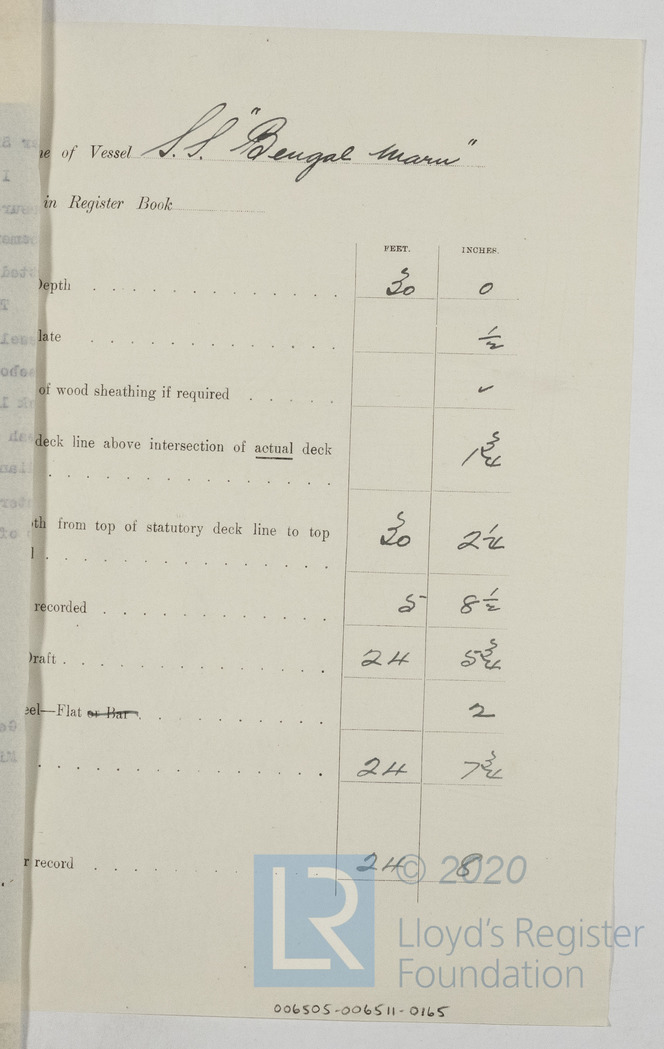 of Vessel S.S. "Bengal Maru"
in Register Book
FEET. INCHES.
Depth . . . . . . . . . . . . . 30 0
late . . . . . . . . . . . . . ½
of wood sheathing if required . . . . . ✓
deck line above intersection of actual deck
. . . . . . . . . . . . . . . 1¾
th from top of statutory deck line to top
. . . . . . . . . . . . . . . 30 2¼
recorded . . . . . . . . . . . . 5 8½
Draft . . . . . . . . . . . . . . 24 5¾
eel—Flat or Bar . . . . . . . . . . 2
. . . . . . . . . . . . . . . 24 7¾
r record . . . . . . . . . . . . 24 8
LR © 2020
Lloyd's Register
Foundation
006505-006511-0165